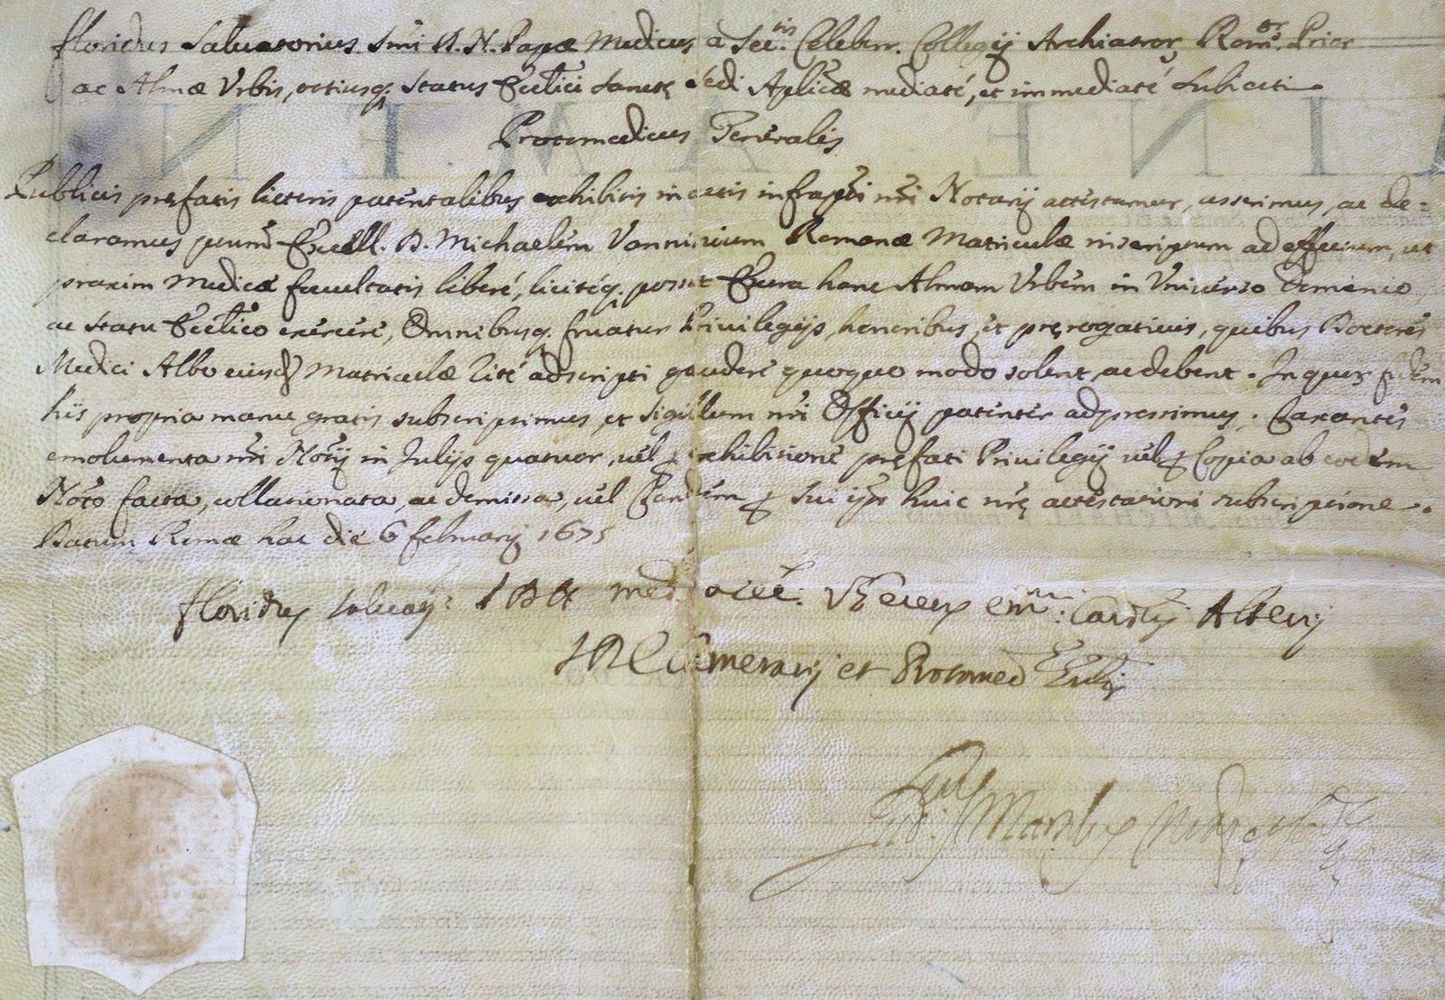 Floridus Salvatorius Smi D. N. Papæ Medicus a Sec.tis Celeberr. Collegij Archiatror, Rom.or Prior
ac Almæ Urbis, totiusq; Status Ecclici Sanctę Sedi Aplicæ mediaté, et immediaté subiecti
Protomedicus Generalis
Publicis pręfatis litteris patentalibus exhibitis in actis infrapti nri Notarij attestamur, asserimus, ac de=
claramus Excell. D. Michaelem Vanninium Romanæ Matriculæ inscriptum ad effectum, ut
praxim Medicæ facultatis liberé, licitéq; possit Extra hanc Almam Urbem in Universo Dominio
ac Statu Ecclico exercere, Omnibusq. fruatur Privilegijs, honoribus, et pręrogativis, quibus Doctores
Medici Albo eiusd Matriculæ rité adscripti gaudere quoquo modo solent, ac debent. In quor fidem
his propria manu gratis subscripsimus, et sigillum nri Officij patenter adpressimus. Taxantes
emolumenta nri Notrij in Julijs quatuor, vel exhibitione pręfati Privilegij vel Copia ab eodem
Noto facta, collationata, ac demissa, vel sui ips huic nrę attestationi subscriptione.
Datum Romæ hac die 6 februarij 1675
Floridus med a sec. Em.mi Cardlis Alterij
Camerarij et Protomed